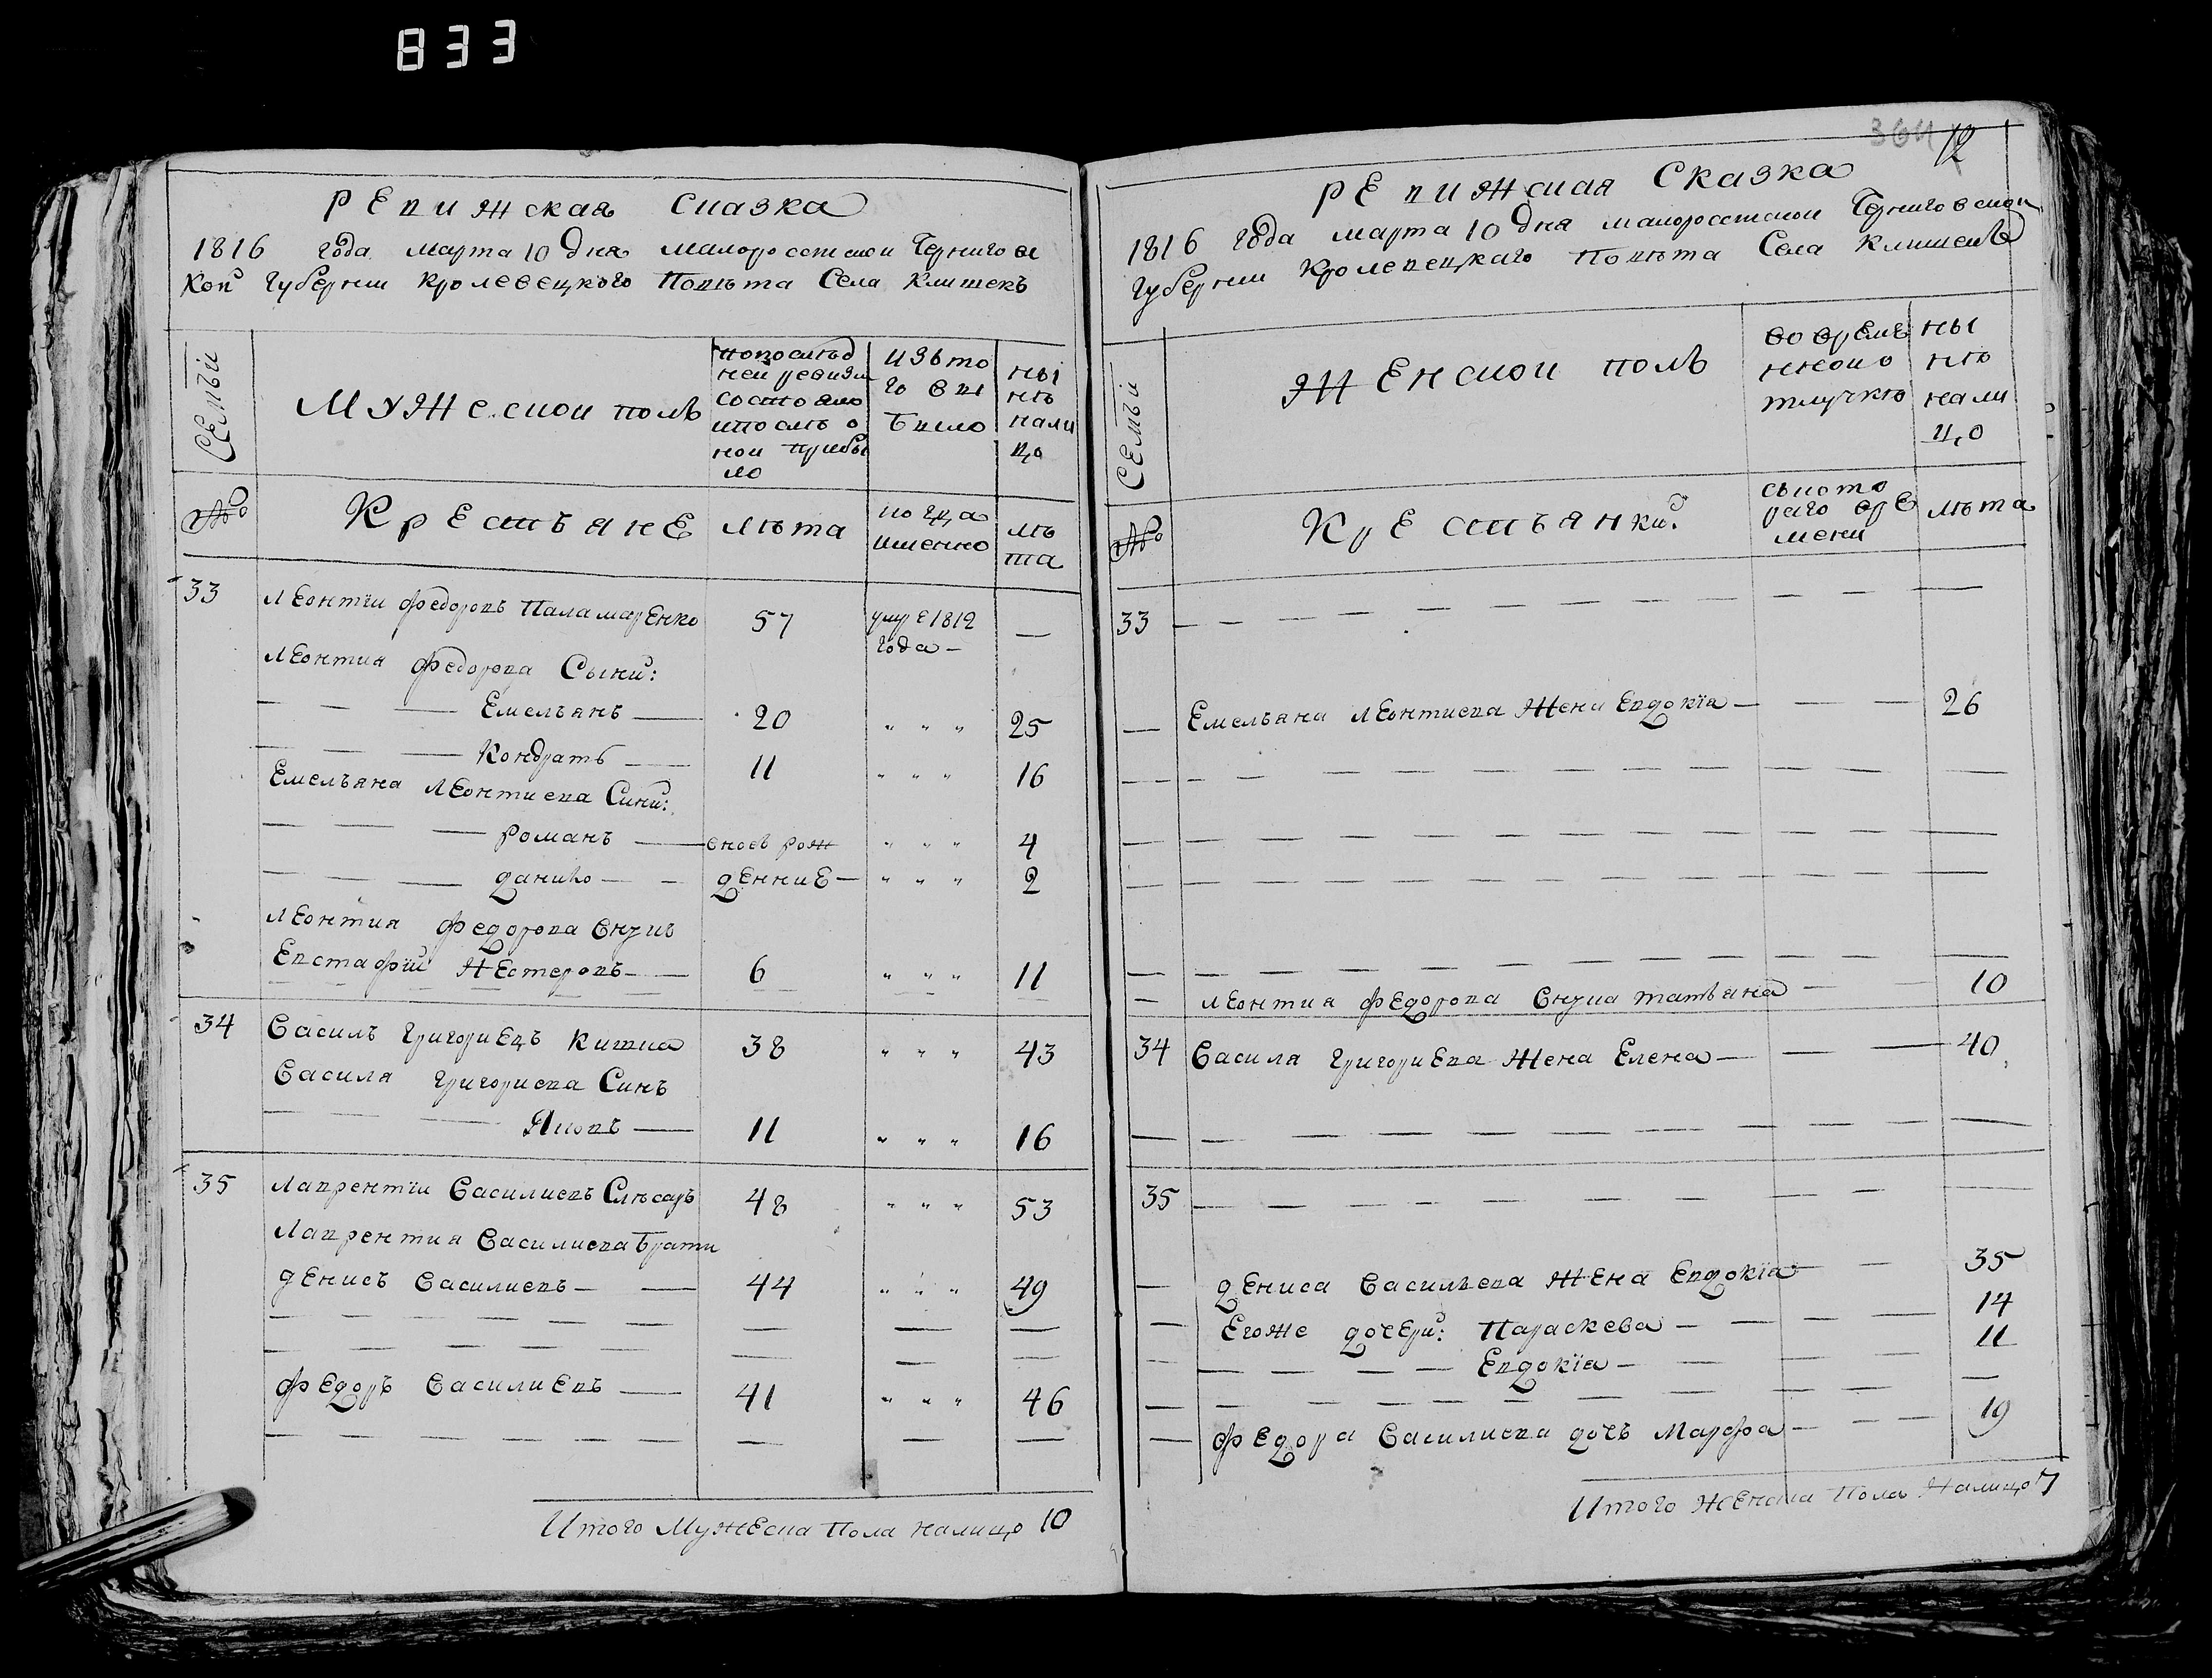 833
Ревижская Сказка
1816 года марта 10 дня малоросстской Чернигов
кой Губернии Кролевецкого Повѣта Села Клишекъ
Семьи
Мужеской полъ
попослѣд
ней ревизи
состояло
ипослѣ о
ной прибы
ло
Изъто
го вы
было
ны
нѣ
нали
цо
№
Крестъяне
лѣта
когда
именно
лѣ
та
33 Леонтіи Федоровъ Паламаренко 57 умре 1812 —
года —
Леонтия Федорова Сыни:
— — — Емельянъ — 20 " " " 25
— — — Кондратъ — 11 " " " 16
Емельяна Леонтиева Сини:
— — — Романъ — вновь рож " " " 4
— — — Данило — — денние — " " " 2
Леонтия Федорова Внукъ
Евстафій Нестеровъ — — 6 " " " 11
34 Василъ Григориевъ Китица 38 " " " 43
Василя Григориева Синъ
— — Яковъ — 11 " " " 16
35 Лаврентіи Василиевъ Слѣсаръ 48 " " " 53
Лаврентия Василиева Брати
Денисъ Василиевъ — — 44 " " " 49
— — — — — — — — —
— — — — — — — — —
Федоръ Василиевъ — 41 " " " 46
— — — — — — — — —
Итого Мужеска Пола налицо 10
364 12
Ревижская Сказка
1816 года марта 10 дня малоросстской Черниговской
Губернии Кролевецкаго Повѣта Села Клишекъ
Семьи
Женской полъ
во време
нной о
тлучкѣ
ны
нѣ
нали
цо
№
Крестъянки:
съкото
раго вре
мени
лѣта
33 — — — — — — — — — — —
— Емельяна Леонтиева Жена Евдокія — — — 26
— — — — — — — — — — —
— — — — — — — — — — —
— — — — — — — — — — —
— — — — — — — — — — —
— Леонтия Федорова Внука татъяна — — 10
34 Василя Григориева Жена Елена — — — 40
— — — — — — — — — — —
35 — — — — — — — — — —
— Дениса Василъева Жена Евдокія — — 35
— Егоже дочери: Параскева — — — — 14
— — — — — — Евдокія — — — — 11
— — — — — — — — — — —
— Федора Василиева дочъ Марфа — — — — 19
Итого Женска Пола Налицо 7